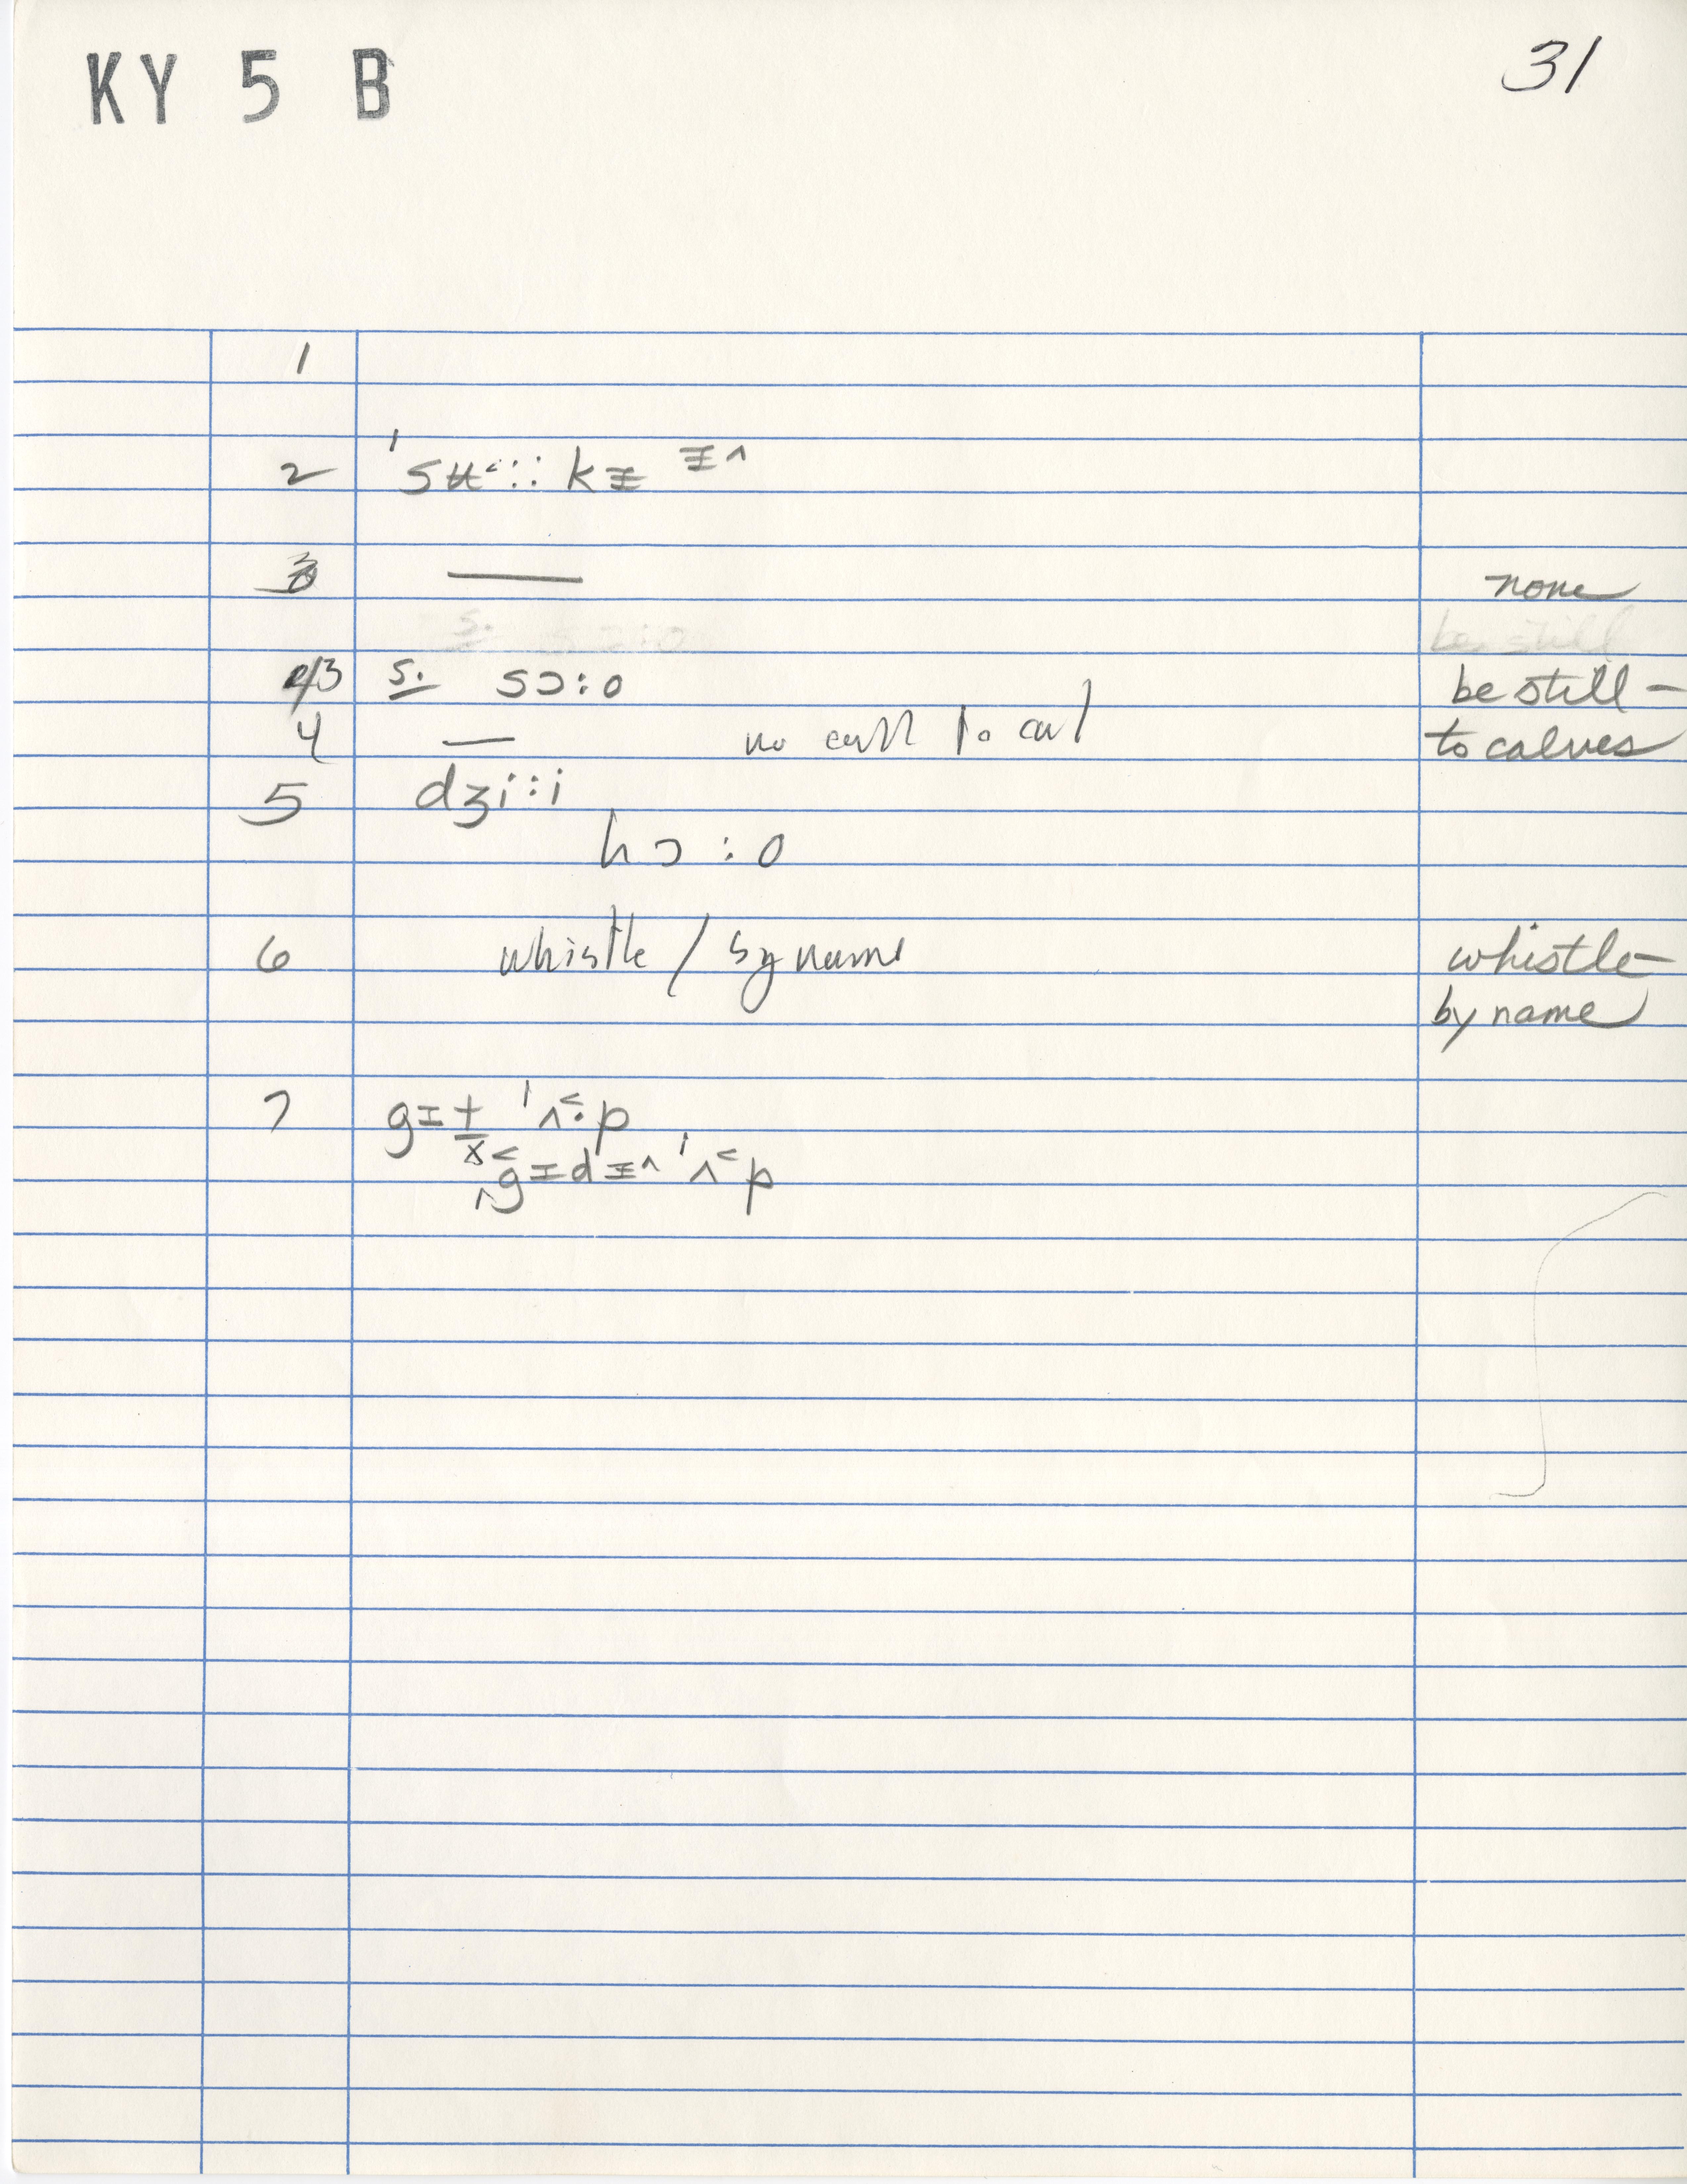 KY 5 B 31
1
2 ˈsʉ˂:: kᵻ ᵻ^
3 — none
3 s. sɔ:o be still –
4 — no call to calf to calves
5 dʒi::i
hɔ:o
6 whistle / by name whistle –
by name
7 gɪt ˈʌ˂·p
gɪdᵻ^ ˈʌ˂p